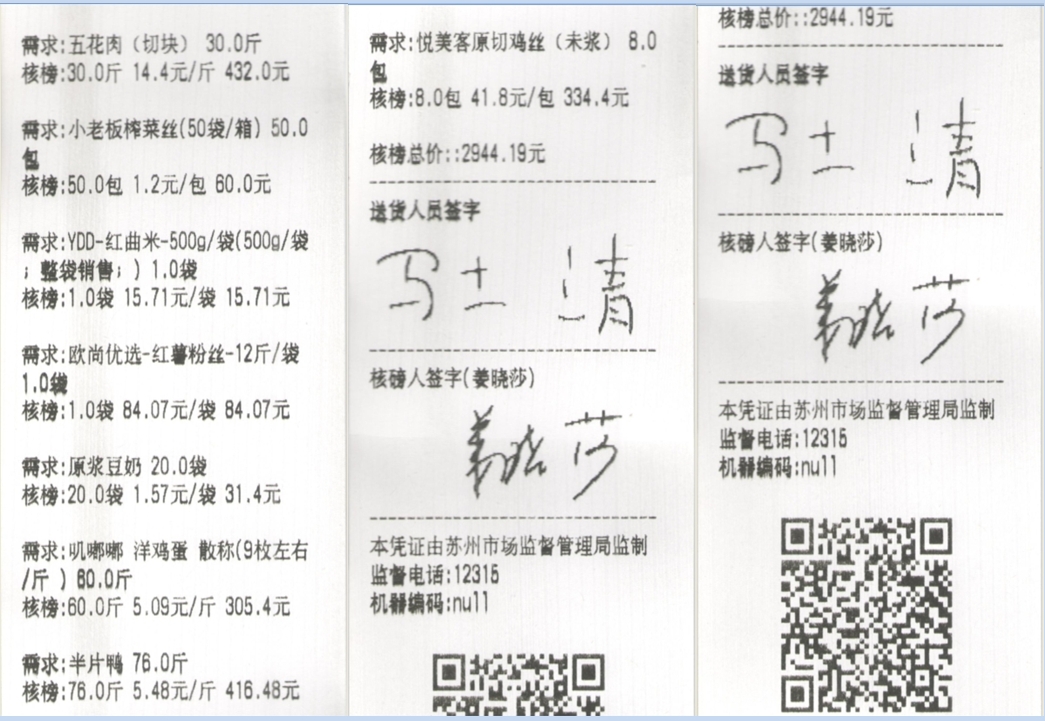 需求:五花肉（切块） 30.0斤
核榜:30.0斤 14.4元/斤 432.0元
需求:小老板榨菜丝(50袋/箱) 50.0
包
核榜:50.0包 1.2元/包 60.0元
需求:YDD-红曲米-500g/袋(500g/袋
；整袋销售；) 1.0袋
核榜:1.0袋 15.71元/袋 15.71元
需求:欧尚优选-红薯粉丝-12斤/袋
1.0袋
核榜:1.0袋 84.07元/袋 84.07元
需求:原浆豆奶 20.0袋
核榜:20.0袋 1.57元/袋 31.4元
需求:叽嘟嘟 洋鸡蛋 散称(9枚左右
/斤 ) 60.0斤
核榜:60.0斤 5.09元/斤 305.4元
需求:半片鸭 76.0斤
核榜:76.0斤 5.48元/斤 416.48元
需求:悦美客原切鸡丝（未浆） 8.0
包
核榜:8.0包 41.8元/包 334.4元
核榜总价::2944.19元
送货人员签字
马士清
核磅人签字(姜晓莎)
姜晓莎
本凭证由苏州市场监督管理局监制
监督电话:12315
机器编码:null
核榜总价::2944.19元
送货人员签字
马士清
核磅人签字(姜晓莎)
姜晓莎
本凭证由苏州市场监督管理局监制
监督电话:12315
机器编码:null